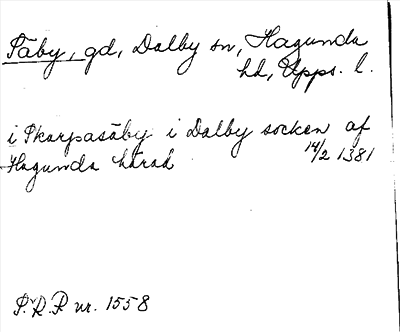 Säby, gd, Dalby sn, Hagunda
hd, Upps. l.
i Skarpasäby i Dalby socken af
Hagunda härad 14/2 1381
S.R.P. nr. 1558